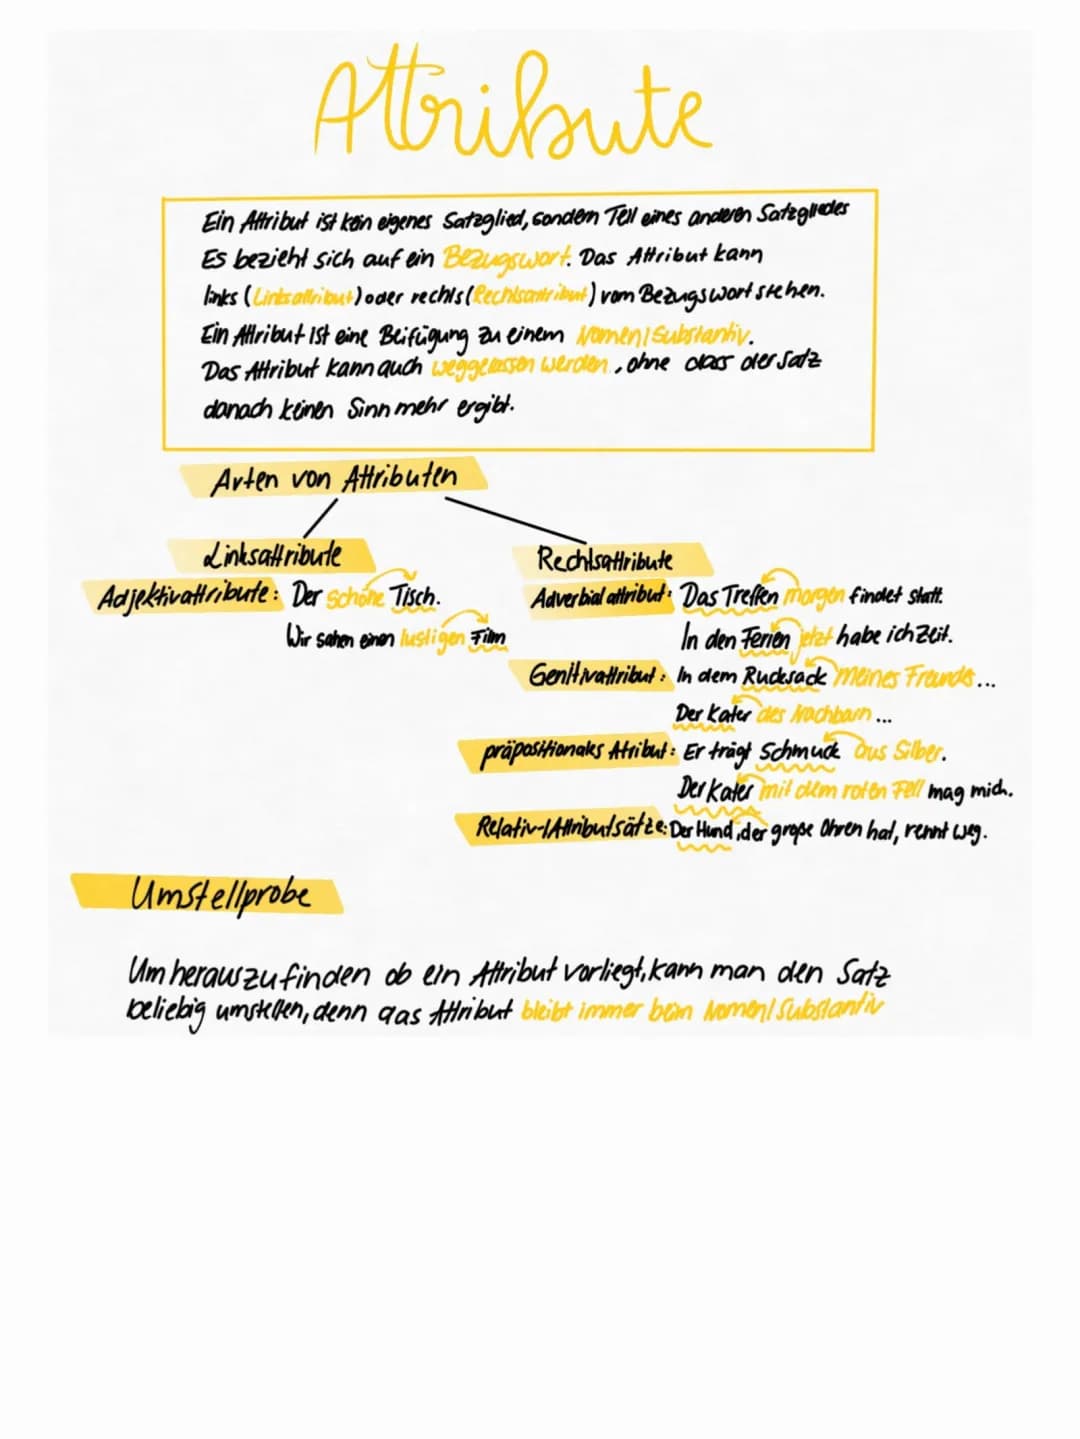 Attribute
Ein Attribut ist kein eigenes Satzglied, sondern Teil eines anderen Satzgliedes
Es bezieht sich auf ein Bezugswort. Das Attribut kann
links (Linksattribut) oder rechts (Rechtsattribut) vom Bezugswort stehen.
Ein Attribut ist eine Beifügung zu einem Nomen/Substantiv.
Das Attribut kann auch weggelassen werden, ohne dass der Satz
danach keinen Sinn mehr ergibt.
Arten von Attributen
Linksattribute
Adjektivattribute: Der schöne Tisch.
Wir sahen einen lustigen Film
Rechtsattribute
Adverbialattribut: Das Treffen morgen findet statt.
In den Ferien jetzt habe ich Zeit.
Genitivattribut: In dem Rucksack meines Freundes...
Der Kater des Nachbarn...
präpositionales Atribut: Er trägt Schmuck aus Silber.
Der Kater mit dem roten Fell mag mich.
Relativ-/Attributsätze: Der Hund, der große Ohren hat, rennt weg.
Umstellprobe
Um herauszufinden ob ein Attribut vorliegt, kann man den Satz
beliebig umstellen, denn das Attribut bleibt immer beim Nomen/Substantiv